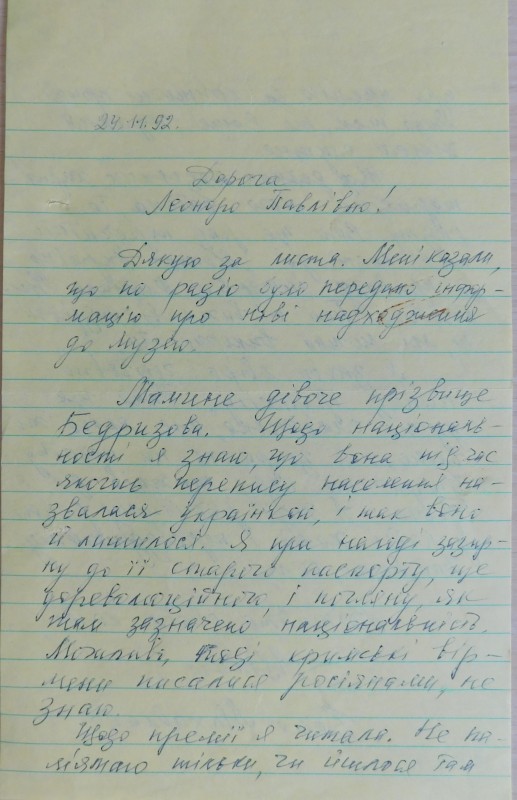 24.11.92.
Дорога
Леоноро Павлівно!
Дякую за листа. Мені казали,
що по радіо було передано інфор-
мацію про нові надходження
до музею.
Мамине дівоче прізвище
Бедризова. Щодо національ-
ності я знаю, що вона під час
якогось перепису населення на-
звалася українкою, і так воно
й лишилося. Я при нагоді зазир-
ну до її старого паспорту, ще
дореволюційного, і погляну, як
там зазначено національність.
Можливо, тоді кримські вір-
мени писалися росіянами, не
знаю.
Щодо премії я читала. Не па-
м'ятаю тільки, чи йшлося там